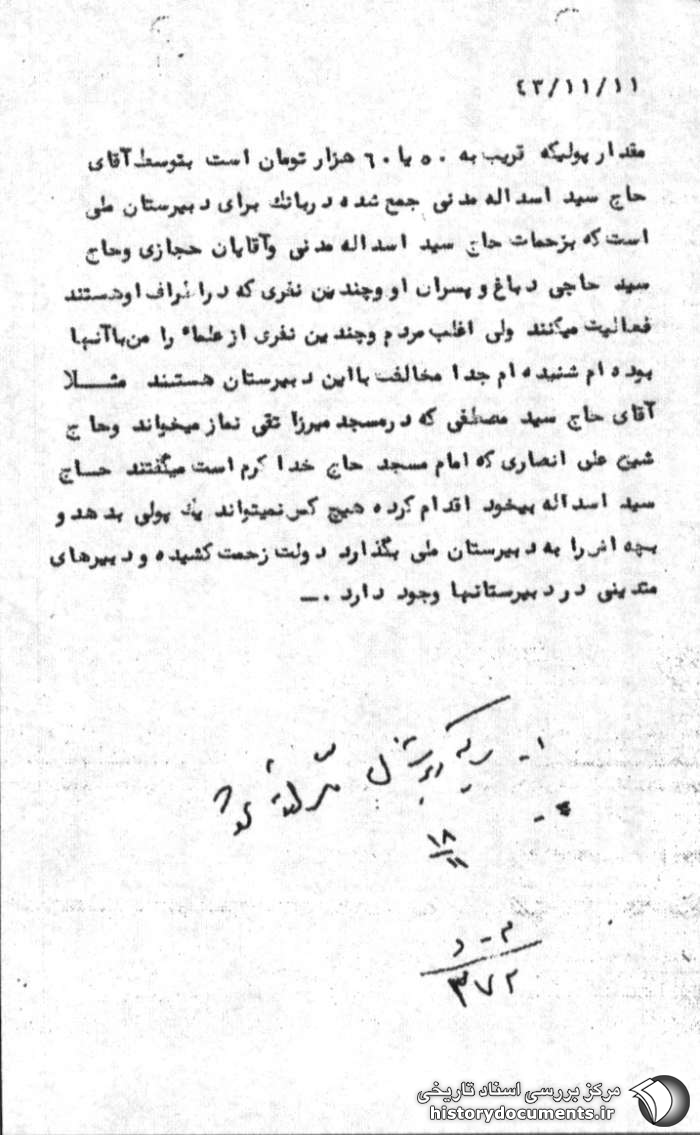 ٤٣/١١/١١
مقدار پولیکه قریب به ٥٠ یا ٦٠ هزار تومان است بتوسط آقای
حاج سید اسداله مدنی جمع شده در بانك برای دبیرستان ملی
است که بزحمات حاج سید اسداله مدنی وآقایان حجازی وحاج
سید حاجی دباغ و پسران او وچندین نفری که در اطراف او هستند
فعالیت میکنند ولی اغلب مردم وچندین نفری از علماء را من با آنها
بوده ام شنیده ام جدا مخالف با این دبیرستان هستند مثـــلا
آقای حاج سید مصطفی که در مسجد میرزا تقی نماز میخواند وحاج
شیخ علی انصاری که امام مسجد حاج خدا کرم است میگفتند حـاج
سید اسداله بیخود اقدام کرده هیچ کس نمیتواند یك پولی بدهد و
بچه اش را به دبیرستان ملی بگذارد دولت زحمت کشیده و دبیرهای
متدینی در دبیرستانها وجود دارد .ــ
١ـ
١٨
١١
م - د
٣٧٢
مرکز بررسی اسناد تاریخی
historydocuments.ir